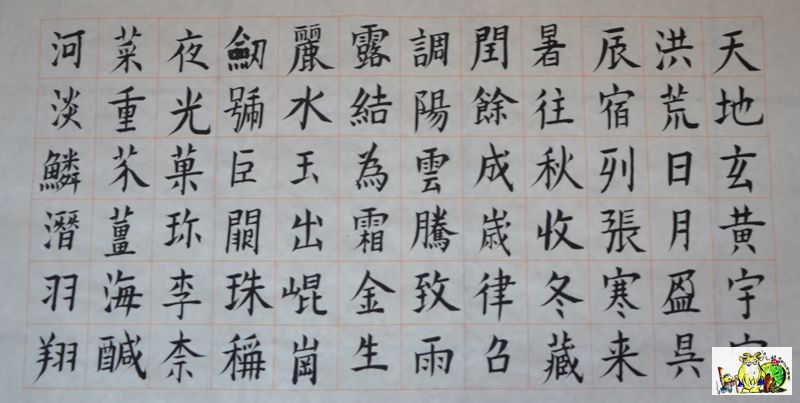 天地玄黃宇
洪荒日月盈昃
辰宿列張寒来
暑往秋收冬藏
閏餘成歲律召
調陽雲騰致雨
露結為霜金生
麗水玉出崐崗
劒號巨闕珠稱
夜光菓珎李柰
菜重芥薑海醎
河淡鱗潛羽翔